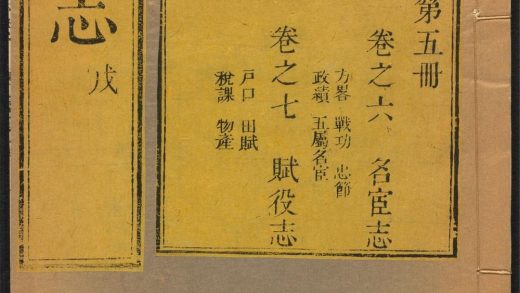 第五冊
卷之六 名宦志
方畧 戰功 忠節
政績 五屬名宦
卷之七 賦役志
戶口 田賦
稅課 物產
志
戊